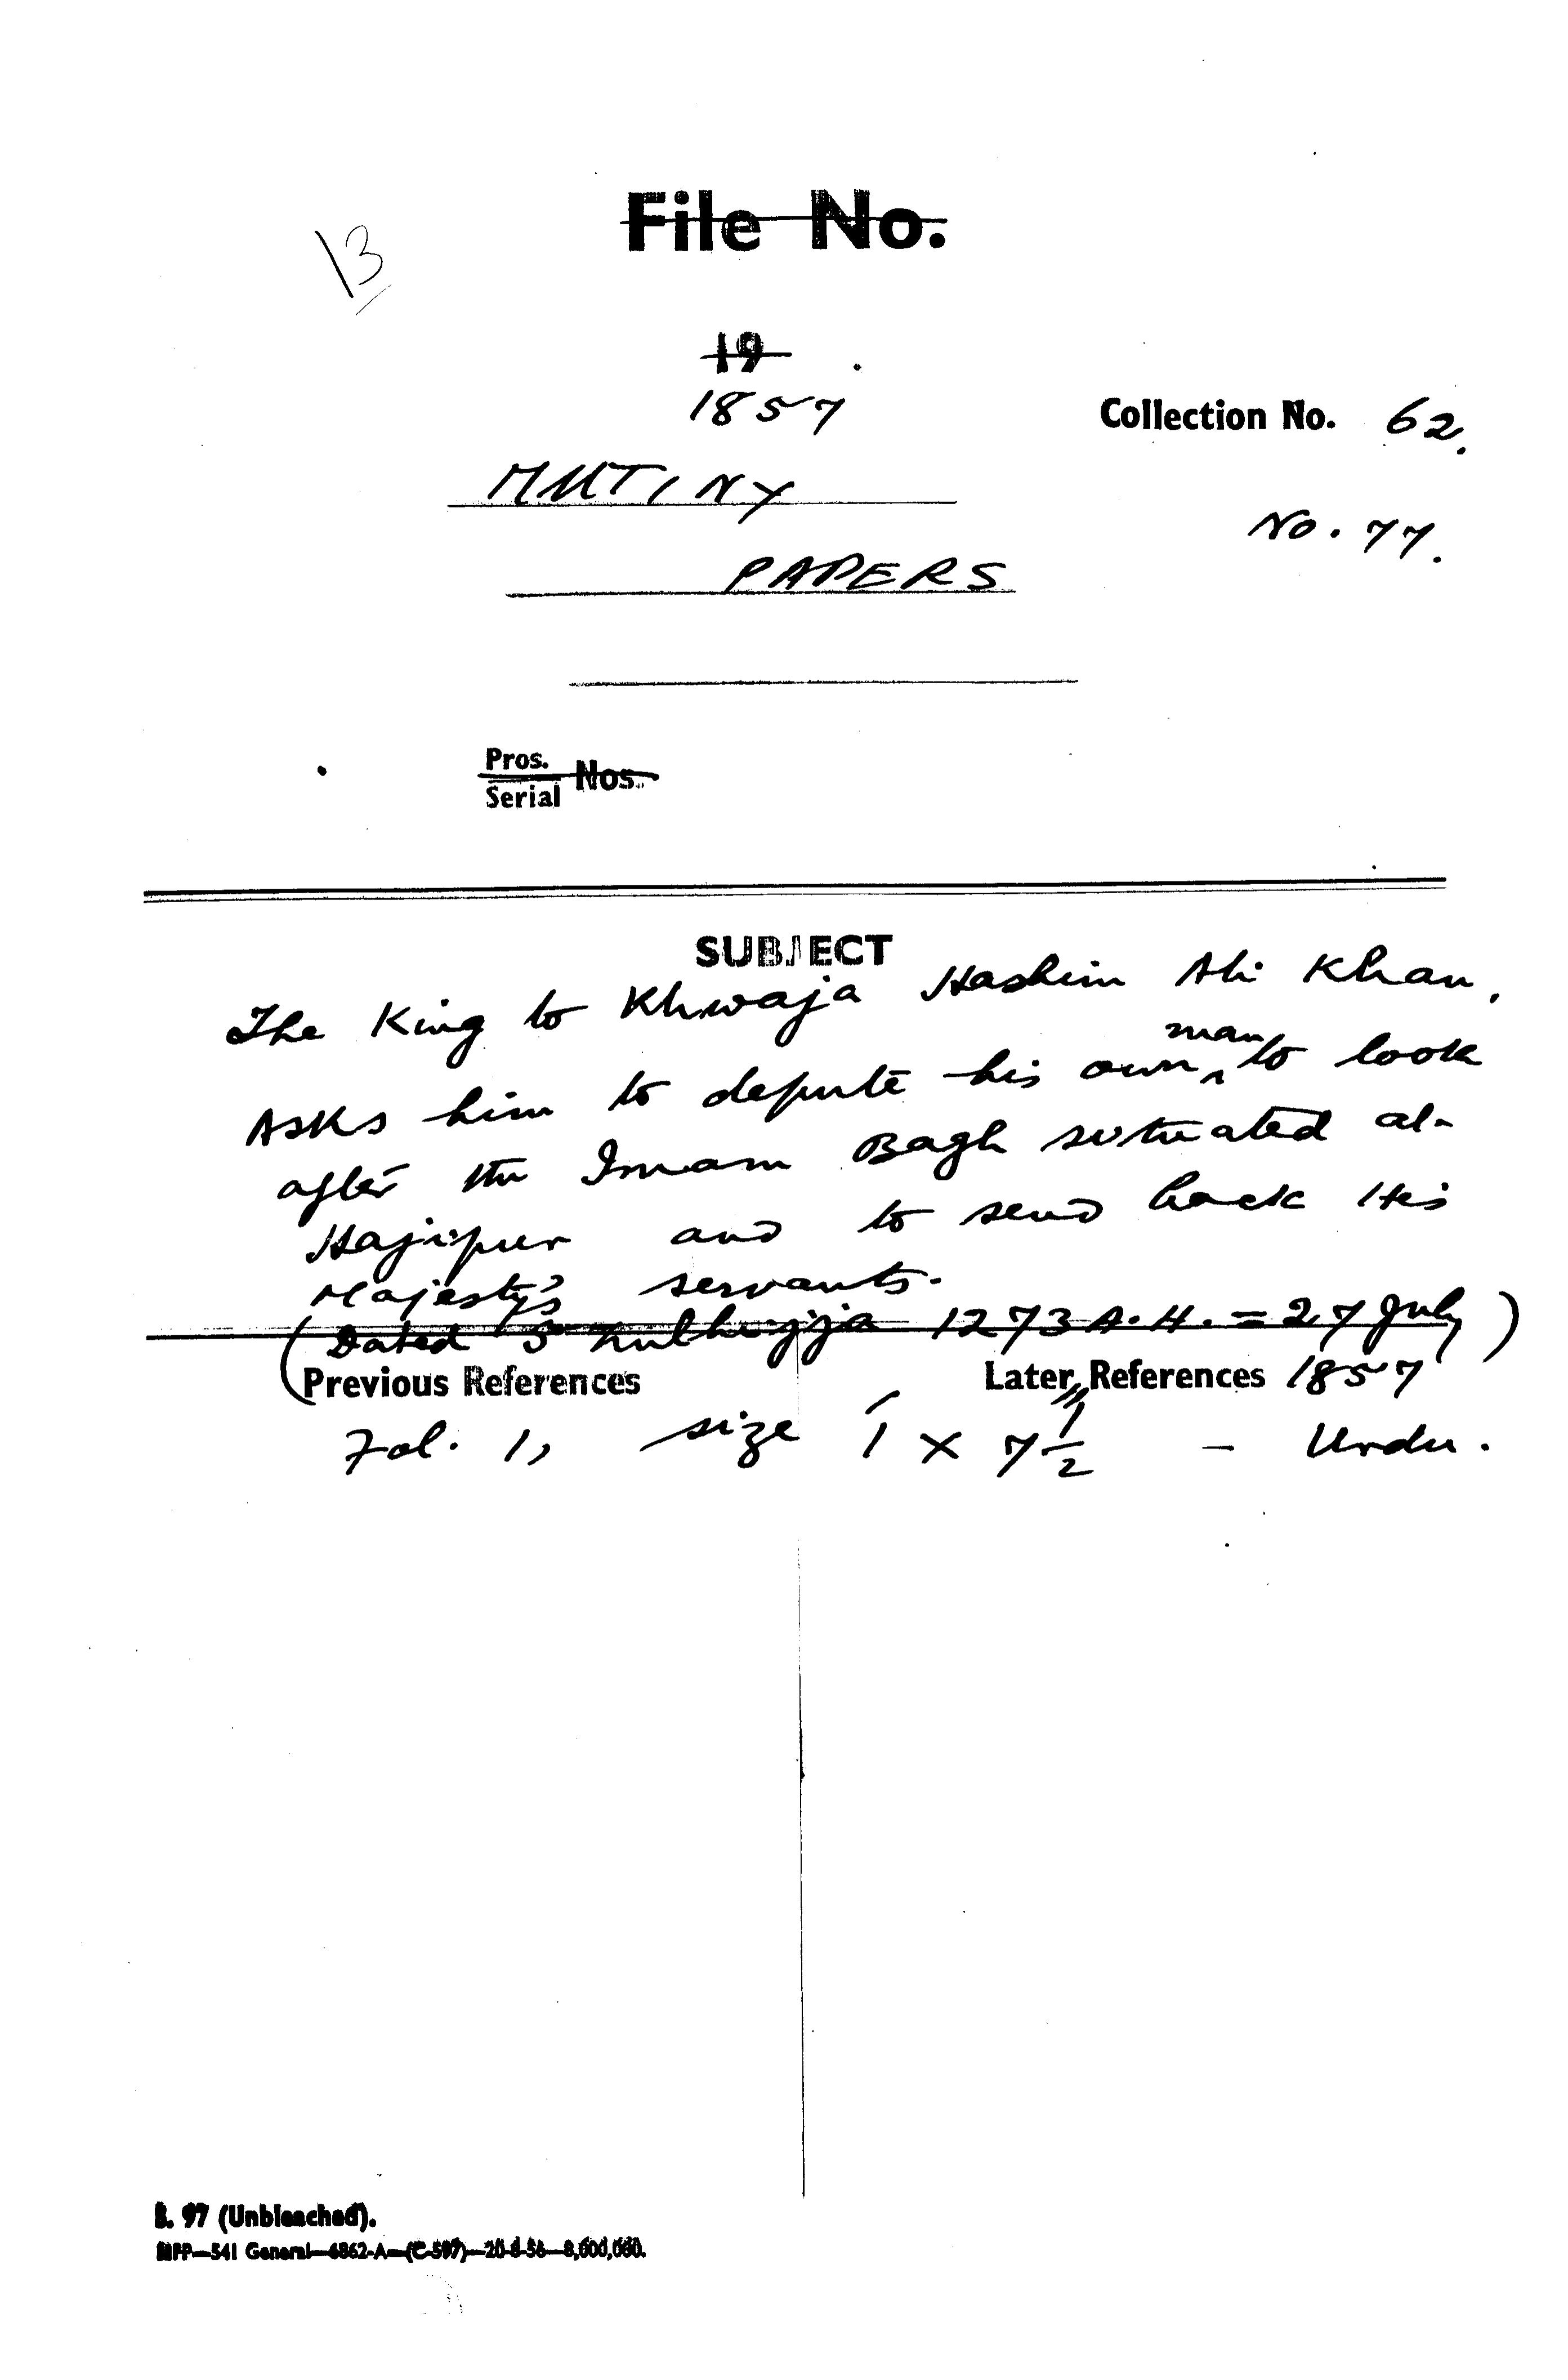 File No.
13
19
1857
Collection No. 62.
MUTINY
No. 77.
PAPERS
Pros.
Serial Nos.
SUBJECT
The King to Khwaja Hashim Ali Khan.
Asks him to depute his own man to look
after the Imam Bagh situated at
Hajipur and to send back His
Majesty's servants.
(Dated 5 Zulhijja 1273 A.H. = 27 July
1857)
Previous References
Later References
Fol. 1, size 1 × 7 1/2 - Urdu.
S. 97 (Unbleached).
MFP—541 General—6862-A—(C-597)—20-8-56—8,000,000.